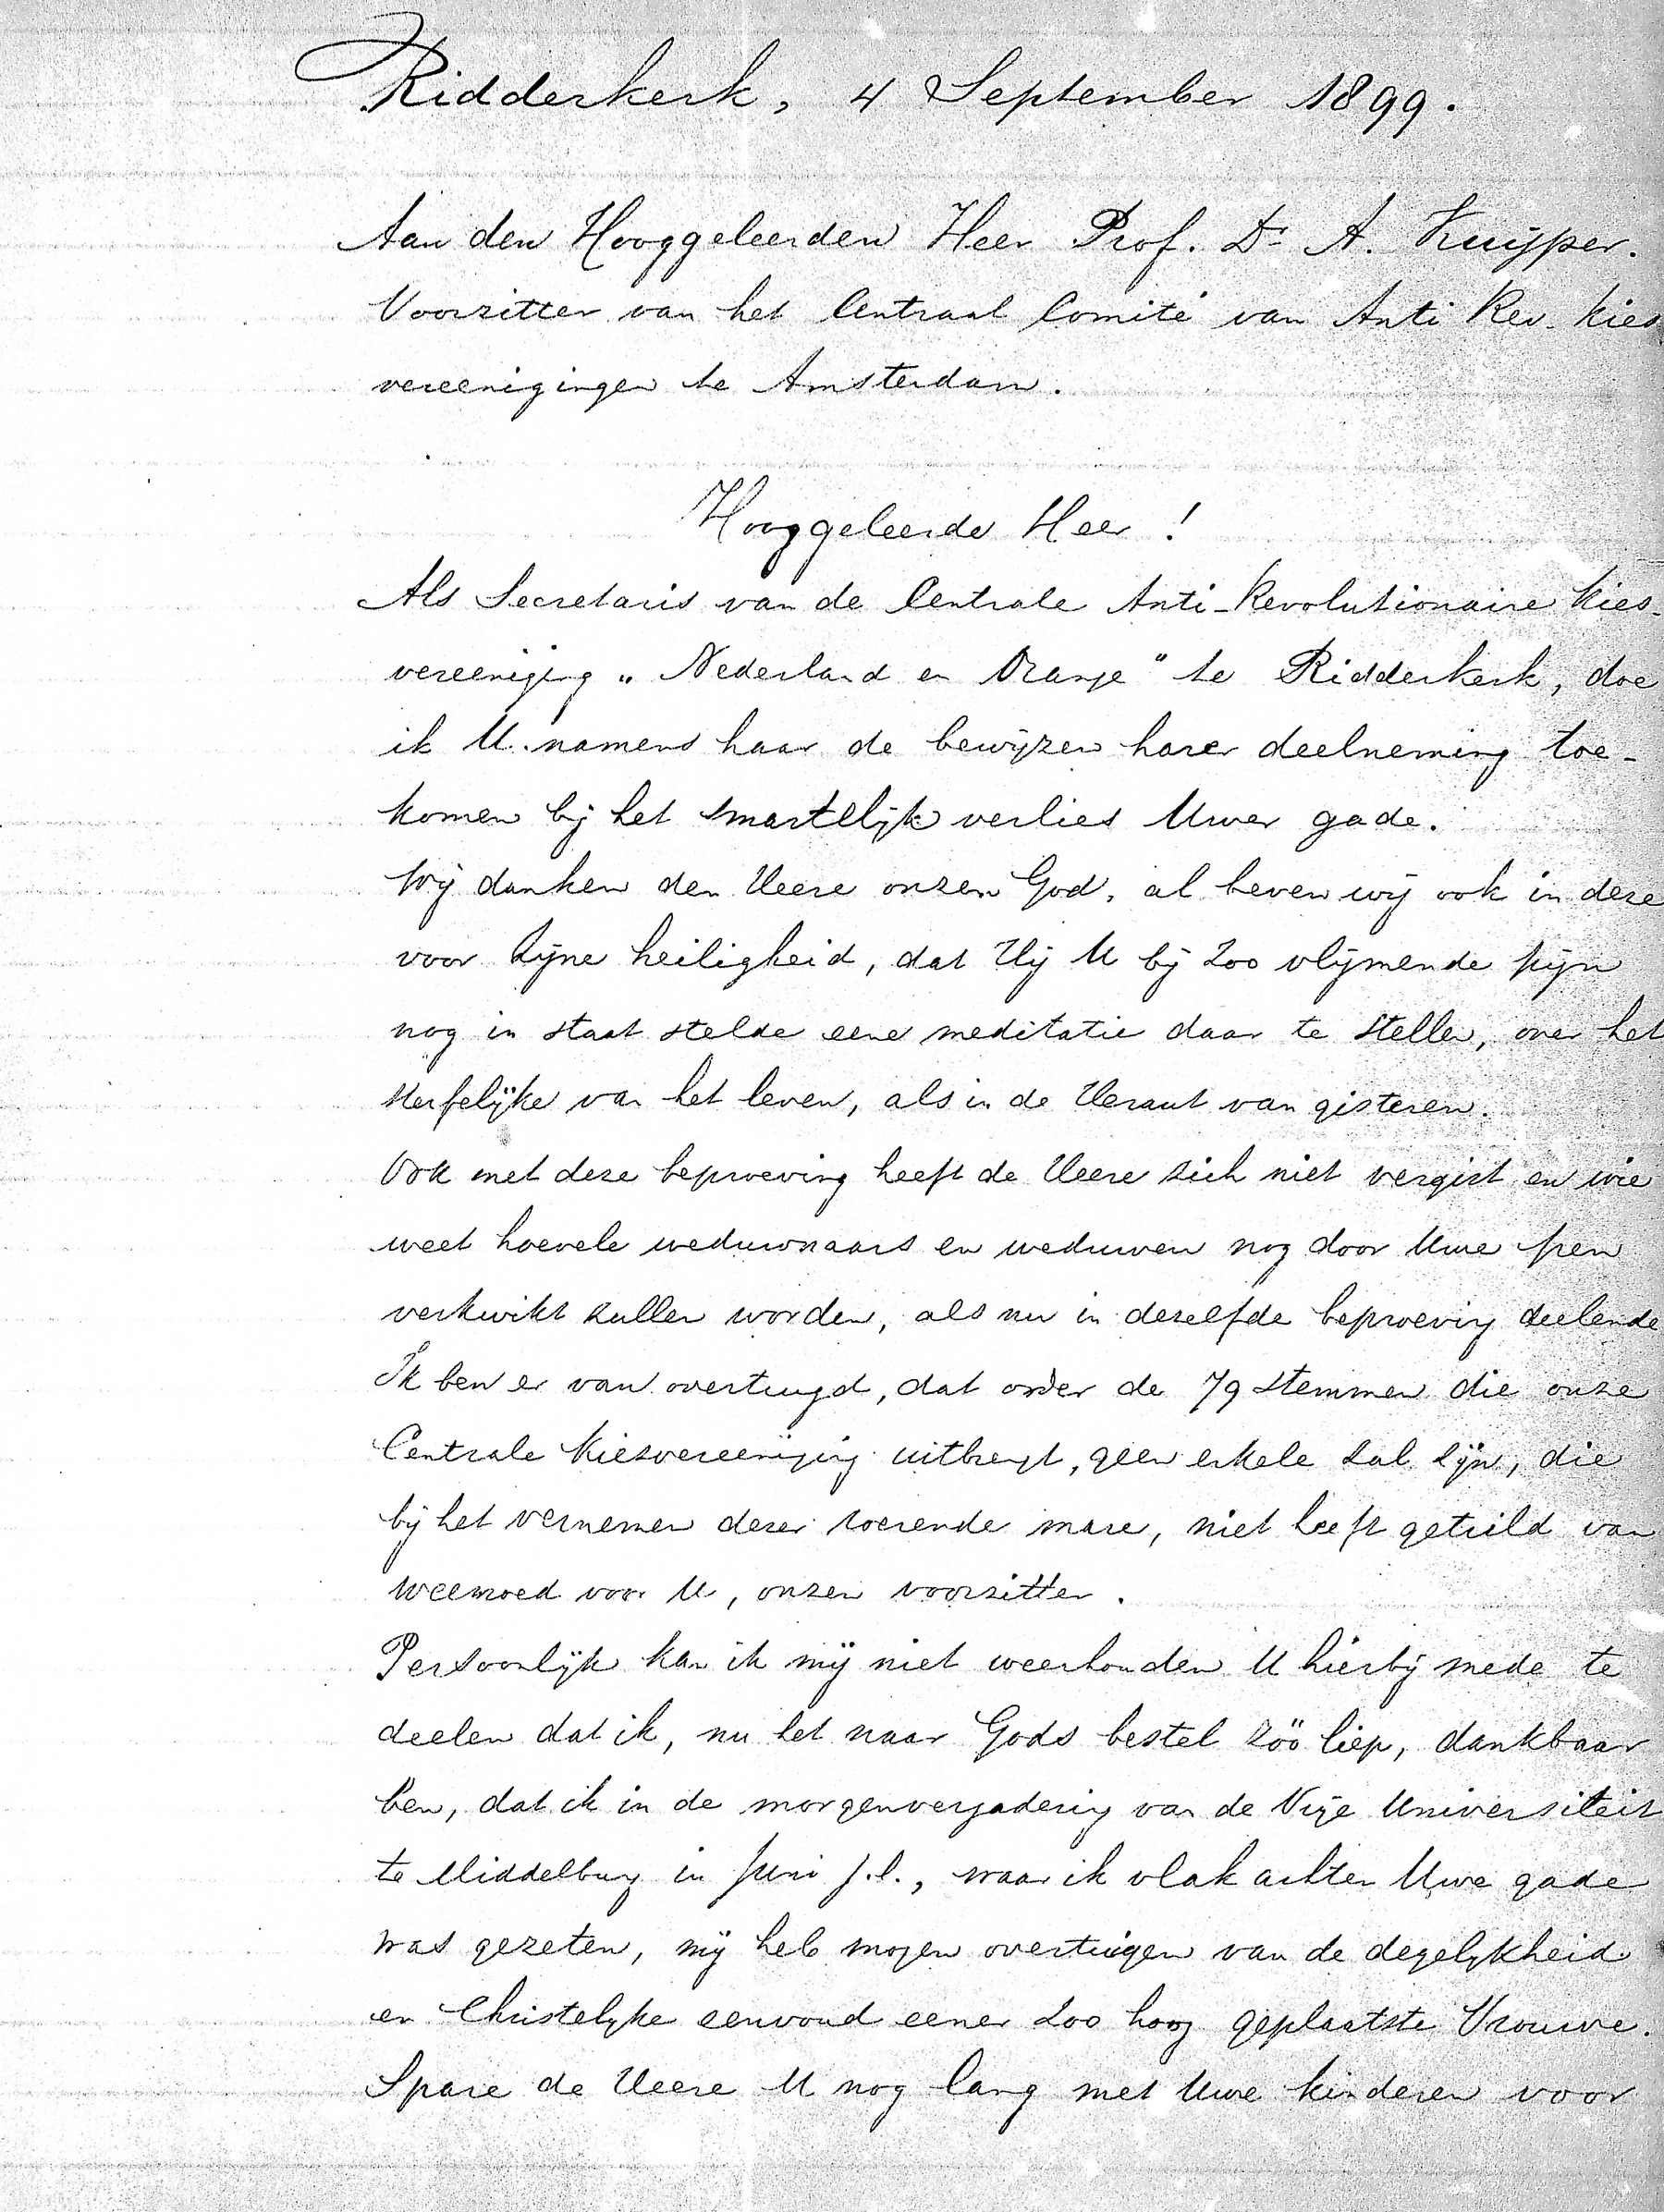 Ridderkerk, 4 September 1899.
Aan den Hooggeleerden Heer Prof. Dr A. Kuijper.
Voorzitter van het Centraal Comité van Anti Rev. kies
vereenigingen te Amsterdam.
Hooggeleerde Heer!
Als Secretaris van de Centrale Anti-Revolutionaire Kies-
vereeniging „Nederland en Oranje" te Ridderkerk, doe
ik U. namens haar de bewijzen harer deelneming toe-
komen bij het smartelijk verlies Uwer gade.
Wij danken den Heere onzen God, al beven wij ook in deze
voor Zijne heiligheid, dat Hij U bij zoo vlijmende pijn
nog in staat stelde eene meditatie daar te stellen, over het
sterfelijke van het leven, als in de Heraut van gisteren.
Ook met deze beproeving heeft de Heere zich niet vergist en wie
weet hoevele weduwnaars en weduwen nog door Uwe pen
verkwikt zullen worden, als nu in dezelfde beproeving deelende
Ik ben er van overtuigd, dat onder de 79 stemmen die onze
Centrale Kiesvereeniging uitbrengt, geen enkele zal zijn, die
bij het vernemen dezer roerende mare, niet heeft getrild van
weemoed voor U, onzen voorzitter.
Persoonlijk kan ik mij niet weerhouden U hierbij mede te
deelen dat ik, nu het naar Gods bestel zóó liep, dankbaar
ben, dat ik in de morgenvergadering van de Vrije Universiteit
te Middelburg in Juni j.l., waar ik vlak achter Uwe gade
was gezeten, mij heb mogen overtuigen van de degelijkheid
en Christelijke eenvoud eener zoo hoog geplaatste Vrouwe.
Spare de Heere U nog lang met Uwe kinderen voor